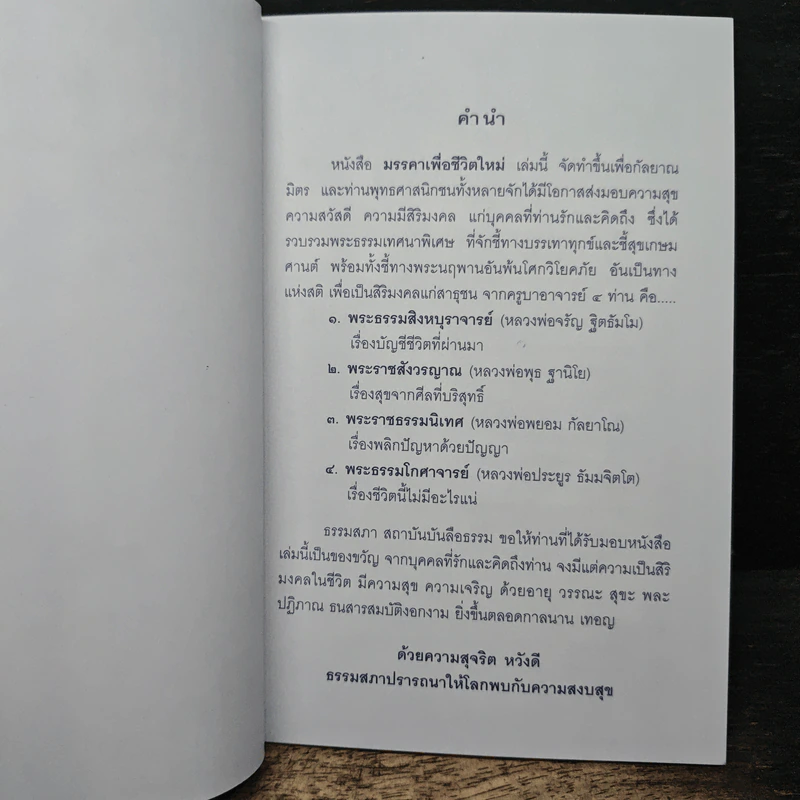 คำนำ
หนังสือ มรรคาเพื่อชีวิตใหม่ เล่มนี้ จัดทำขึ้นเพื่อกัลยาณ
มิตร และท่านพุทธศาสนิกชนทั้งหลายจักได้มีโอกาสส่งมอบความสุข
ความสวัสดี ความมีสิริมงคล แก่บุคคลที่ท่านรักและคิดถึง ซึ่งได้
รวบรวมพระธรรมเทศนาพิเศษ ที่จักชี้ทางบรรเทาทุกข์และชี้สุขเกษม
ศานต์ พร้อมทั้งชี้ทางพระนฤพานอันพ้นโศกวิโยคภัย อันเป็นทาง
แห่งสติ เพื่อเป็นสิริมงคลแก่สาธุชน จากครูบาอาจารย์ ๔ ท่าน คือ.....
๑. พระธรรมสิงหบุราจารย์ (หลวงพ่อจรัญ ฐิตธัมโม)
เรื่องบัญชีชีวิตที่ผ่านมา
๒. พระราชสังวรญาณ (หลวงพ่อพุธ ฐานิโย)
เรื่องสุขจากศีลที่บริสุทธิ์
๓. พระราชธรรมนิเทศ (หลวงพ่อพยอม กัลยาโณ)
เรื่องพลิกปัญหาด้วยปัญญา
๔. พระธรรมโกศาจารย์ (หลวงพ่อประยูร ธัมมจิตโต)
เรื่องชีวิตนี้ไม่มีอะไรแน่
ธรรมสภา สถาบันบันลือธรรม ขอให้ท่านที่ได้รับมอบหนังสือ
เล่มนี้เป็นของขวัญ จากบุคคลที่รักและคิดถึงท่าน จงมีแต่ความเป็นสิริ
มงคลในชีวิต มีความสุข ความเจริญ ด้วยอายุ วรรณะ สุขะ พละ
ปฏิภาณ ธนสารสมบัติงอกงาม ยิ่งขึ้นตลอดกาลนาน เทอญ
ด้วยความสุจริต หวังดี
ธรรมสภาปรารถนาให้โลกพบกับความสงบสุข